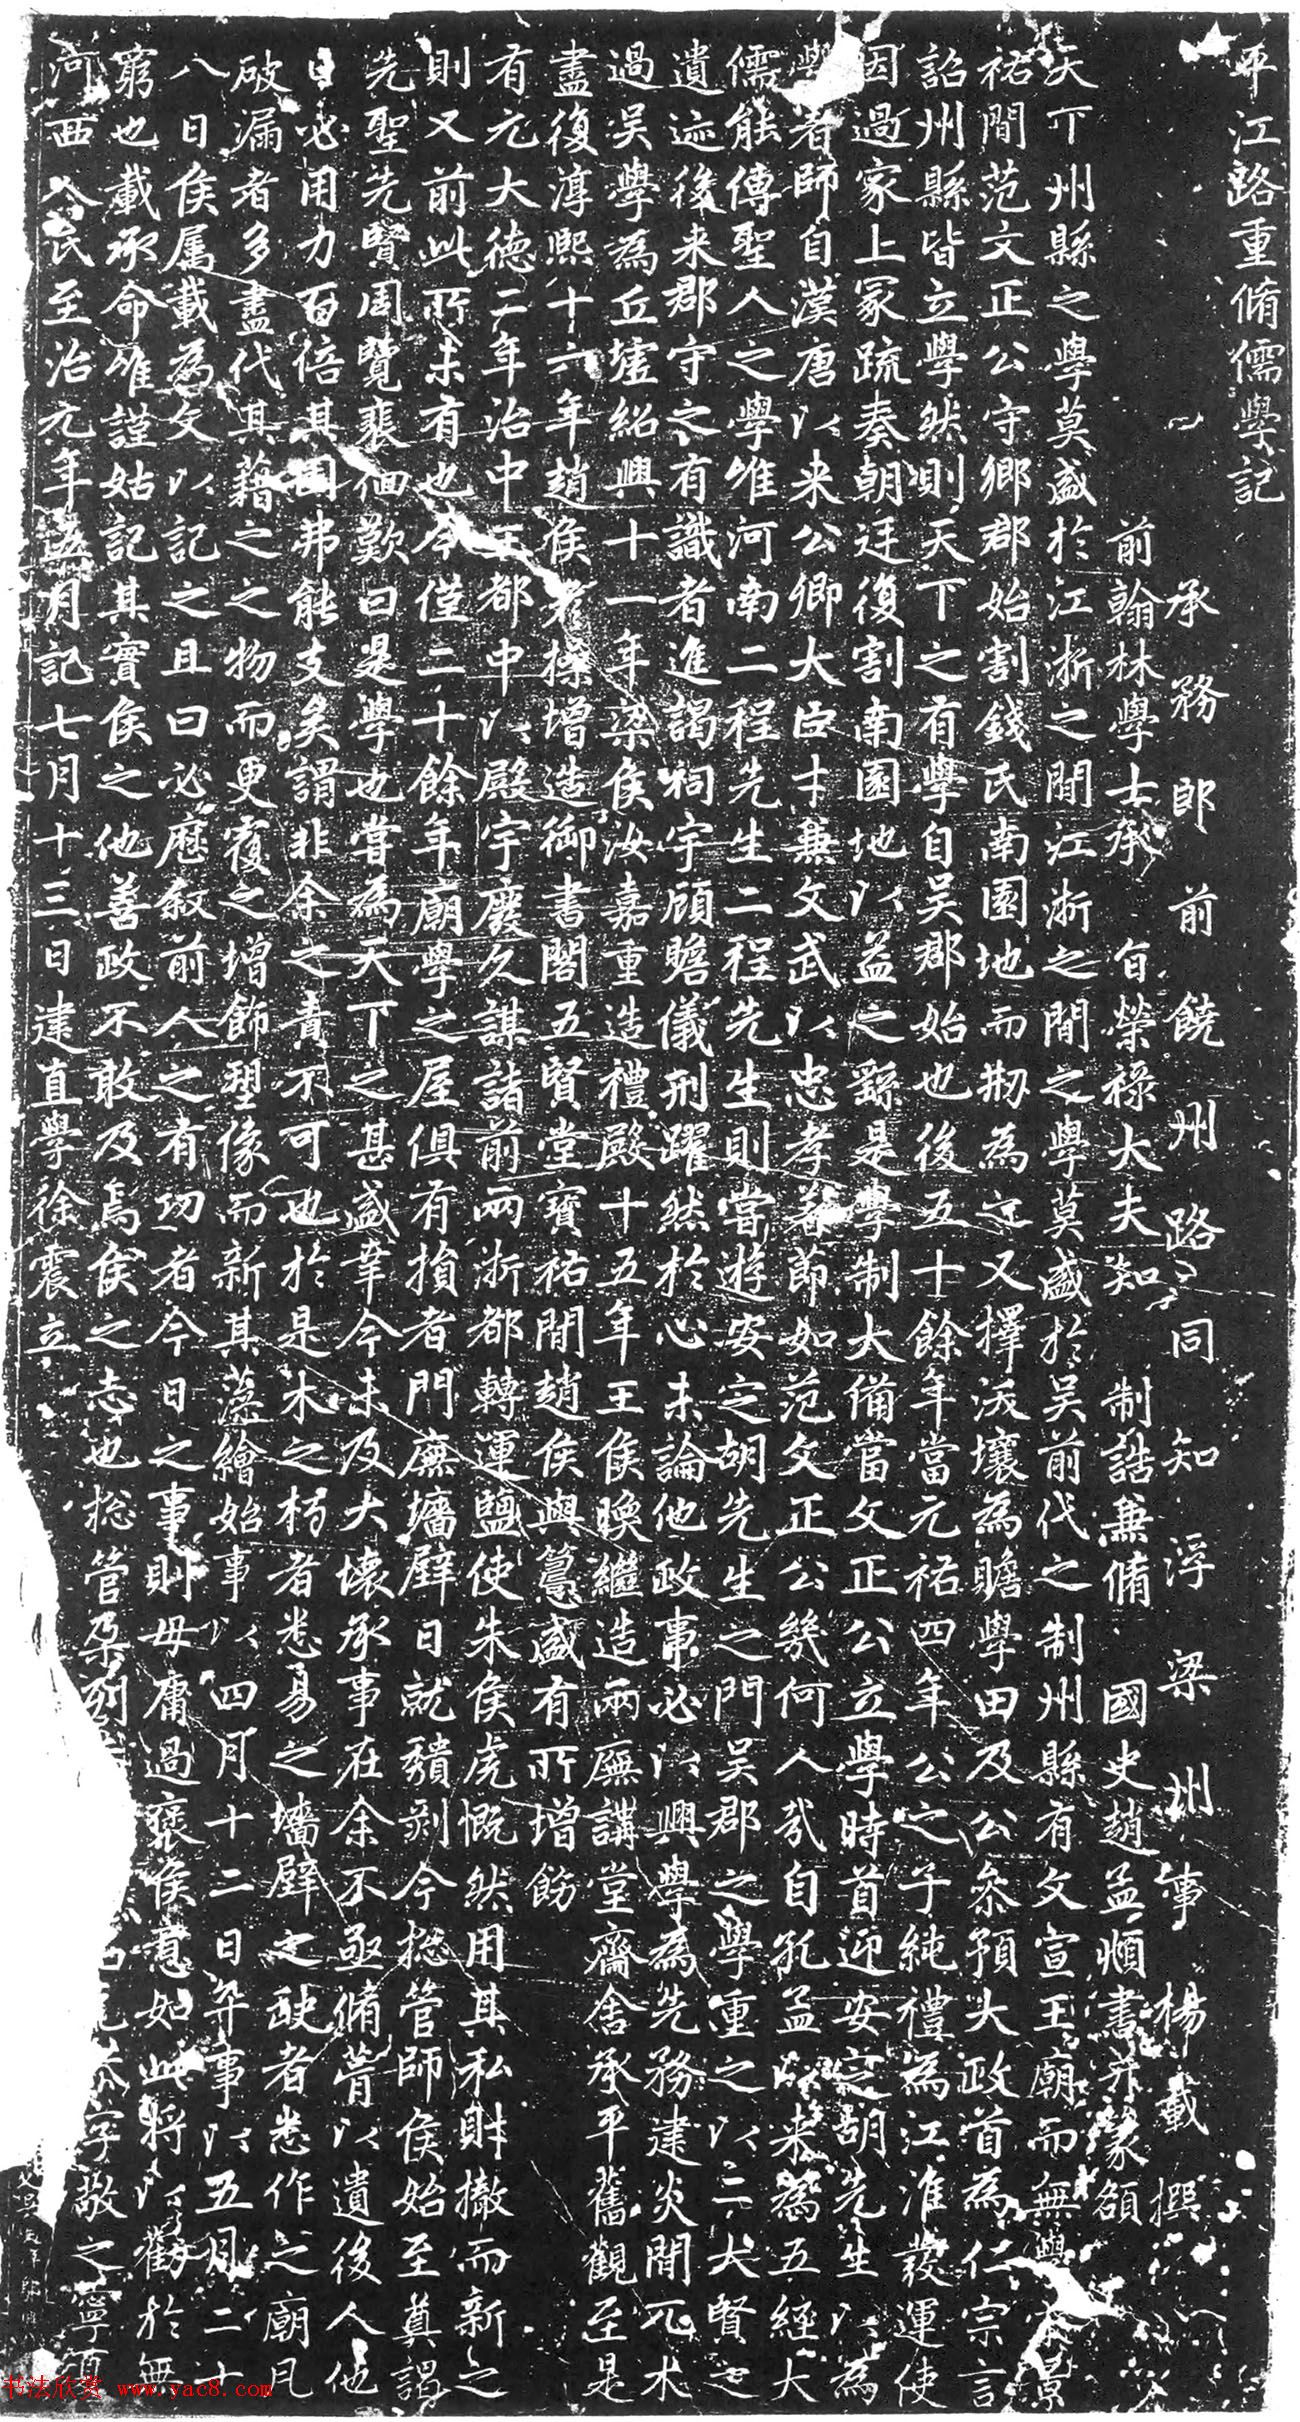 平江路重脩儒學記
承務郎前饒州路同知浮梁州事楊載撰
前翰林學士承旨榮祿大夫知制誥兼脩國史趙孟頫書并篆額
天下州縣之學莫盛於江浙之間江浙之間之學莫盛於吳前代之制州縣有文宣王廟而無學宋景
祐間范文正公守鄉郡始割錢氏南園地而刱為之又擇沃壤為贍學田及公叅預大政首為仁宗言
詔州縣皆立學然則天下之有學自吳郡始也後五十餘年當元祐四年公之子純禮為江淮發運使
因過家上冢疏奏朝廷復割南園地以益之繇是學制大備當文正公立學時首迎安定胡先生以為
學者師自漢唐以來公卿大臣才兼文武以忠孝著節如范文正公幾何人哉自孔孟以來為五經大
儒能傳聖人之學唯河南二程先生二程先生則當遊安定胡先生之門吳郡之學重之以二大賢之
遺迹後来郡守之有識者進謁祠宇顧瞻儀刑躍然於心未論他政事必以興學為先務建炎間兀朮
過吳學為丘墟紹興十一年梁侯汝嘉重造禮殿十五年王侯㬇繼造兩廡講堂齋舍承平舊觀至是
盡復淳熙十六年趙侯彥操增造御書閣五賢堂寶祐間趙侯與篹盛有所增飭
有元大德二年治中王都中以殿宇廢久謀諸前兩浙都轉運鹽使朱侯虎慨然用其私財撤而新之
則又前此所未有也今僅二十餘年廟學之屋俱有損者門廡墻壁日就隤剥今揔管師侯始至奠謁
先聖先賢周覽裴徊歎曰是學也嘗為天下之甚盛幸今未及大壞承事在余不亟脩葺以遺後人他
日必用力百倍其困弗能支矣謂非余之責不可也於是木之朽者悉易之墻壁之缺者悉作之廟凡
破漏者多盡代其藉之之物而更覆之增飾塑像而新其藻繪始事以四月十二日弃事以五月二十
八日侯属載為文以記之且曰必歷敘前人之有功者今日之事則毋庸過褒侯意如此將以勸於無
窮也載承命唯謹姑記其實侯之他善政不敢及焉侯之志也揔管朶列字敬之寧夏
河西人氏至治元年五月記七月十三日建直學徐震立
书法欣赏 www.yac8.com